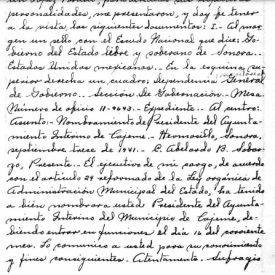 personalidades, me presentaron, y doy fe tener
a la vista, los siguientes documentos: I.- Al mar-
gen un sello con el Escudo Nacional que dice: Go-
bierno del Estado libre y soberano de Sonora.-
Estados Unidos mexicanos.- En la esquina su-
perior derecha un cuadro: dependencia: General
de Gobierno.- Sección de Gobernación.- Mesa
Número de oficio 11-9643.- Expediente.- Al centro:
Asunto:- Nombramiento del Presidente del Ayunta-
miento Interino de Cajeme.- Hermosillo, Sonora,
septiembre trece de 1941.- C. Abelardo B. Sobar-
zo, Presente.- El ejecutivo de mi cargo, de acuerdo
con el artículo 29 reformado de la Ley orgánica de
Administración Municipal del Estado, ha tenido
a bien nombrar a usted Presidente del Ayunta-
miento Interino del Municipio de Cajeme, de-
biendo entrar en funciones el día 16 del corriente
mes. Lo comunico a usted para su conocimiento
y fines consiguientes. Atentamente. Sufragio